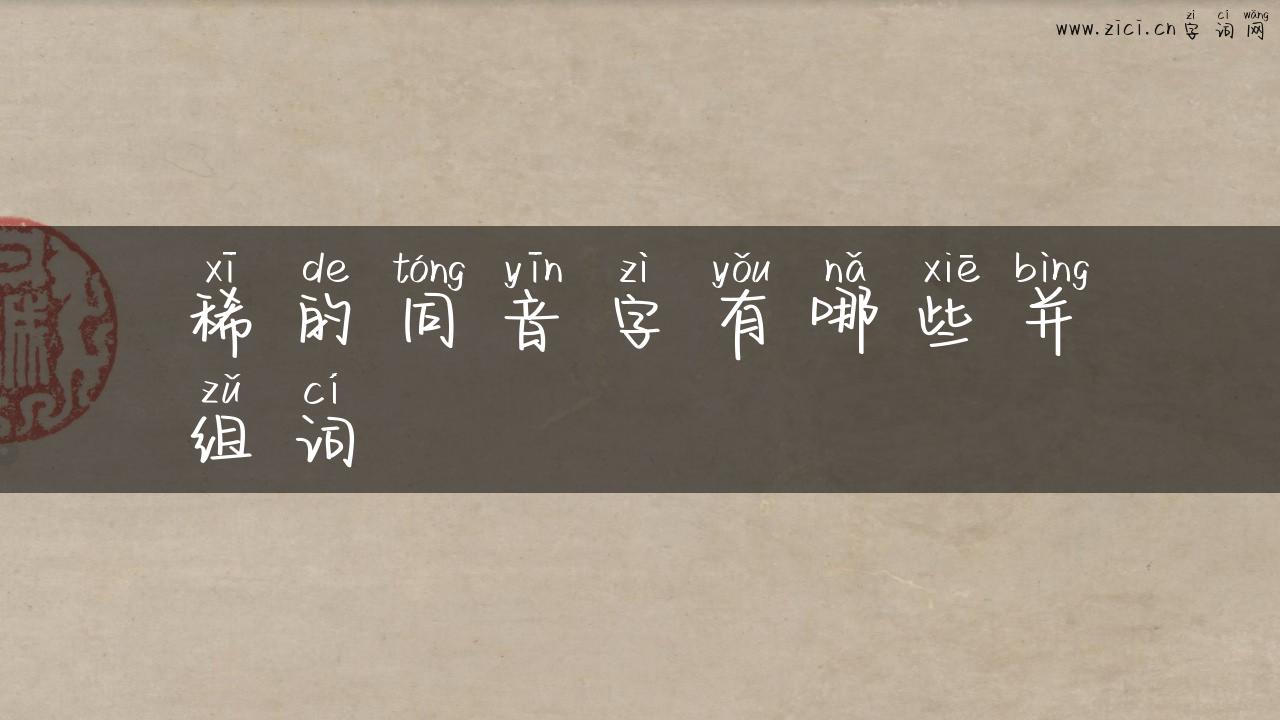 www.zici.cn字词网
zì cí wǎng
xī de tóng yīn zì yǒu nǎ xiē bìng
稀的同音字有哪些并
zǔ cí
组词